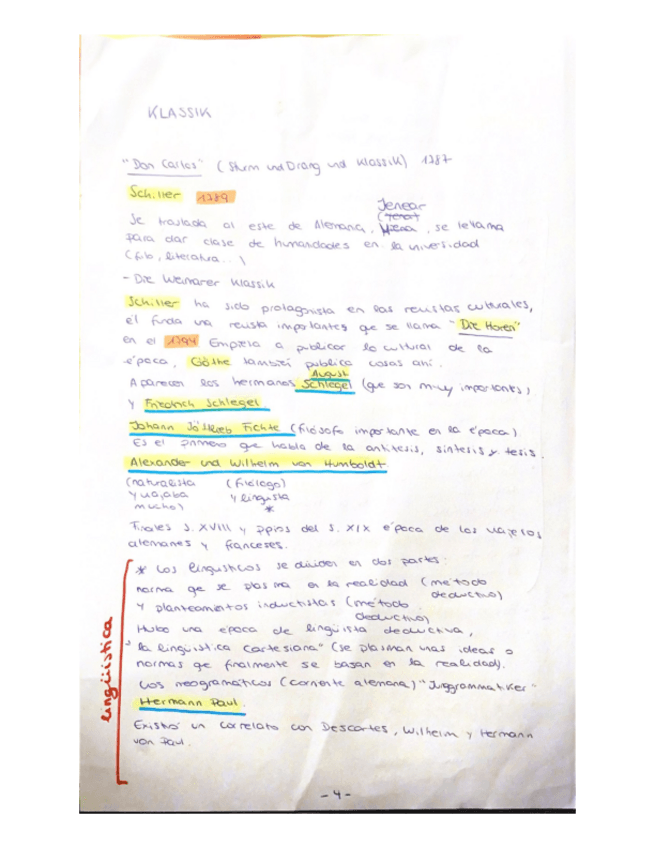 KLASSIK
"Don Carlos" (Sturm und Drang und Klassik) 1787
Schiller 1789
Jenear
Se traslada al este de Alemana, , se le llama
para dar clase de humanidades en la universidad
(fib, literatura...)
- Die Weimarer Klassik
Schiller ha sido protagonista en las revistas culturales,
él funda una revista importantes que se llama "Die Horen"
en el 1794 Empieza a publicar lo cultural de la
época, Göthe también publica cosas ahí.
August
Aparecen los hermanos Schlegel (que son muy importantes)
y Friedrich Schlegel
Johann Göttlieb Fichte (filósofo importante en la época)
Es el primero que habla de la antítesis, síntesis y tesis.
Alexander und Wilhelm von Humboldt
(naturalista (filólogo)
y viajaba y lingüista
mucho) *
Finales s. XVIII y ppios del s. XIX época de los viajeros
alemanes y franceses.
lingüística
* Los lingüisticos se dividen en dos partes:
norma qe se plasma en la realidad (método
deductivo)
y planteamientos inductistas (método
deductivo)
Hubo una época de lingüista deductiva,
"la lingüistica cartesiana" (se plasman unas ideas o
normas qe finalmente se basan en la realidad).
Los neogramáticos (corriente alemana) "Junggrammatiker"
Hermann Paul.
Existió un correlato con Descartes, Wilhelm y Hermann
von Paul.
- 4 -